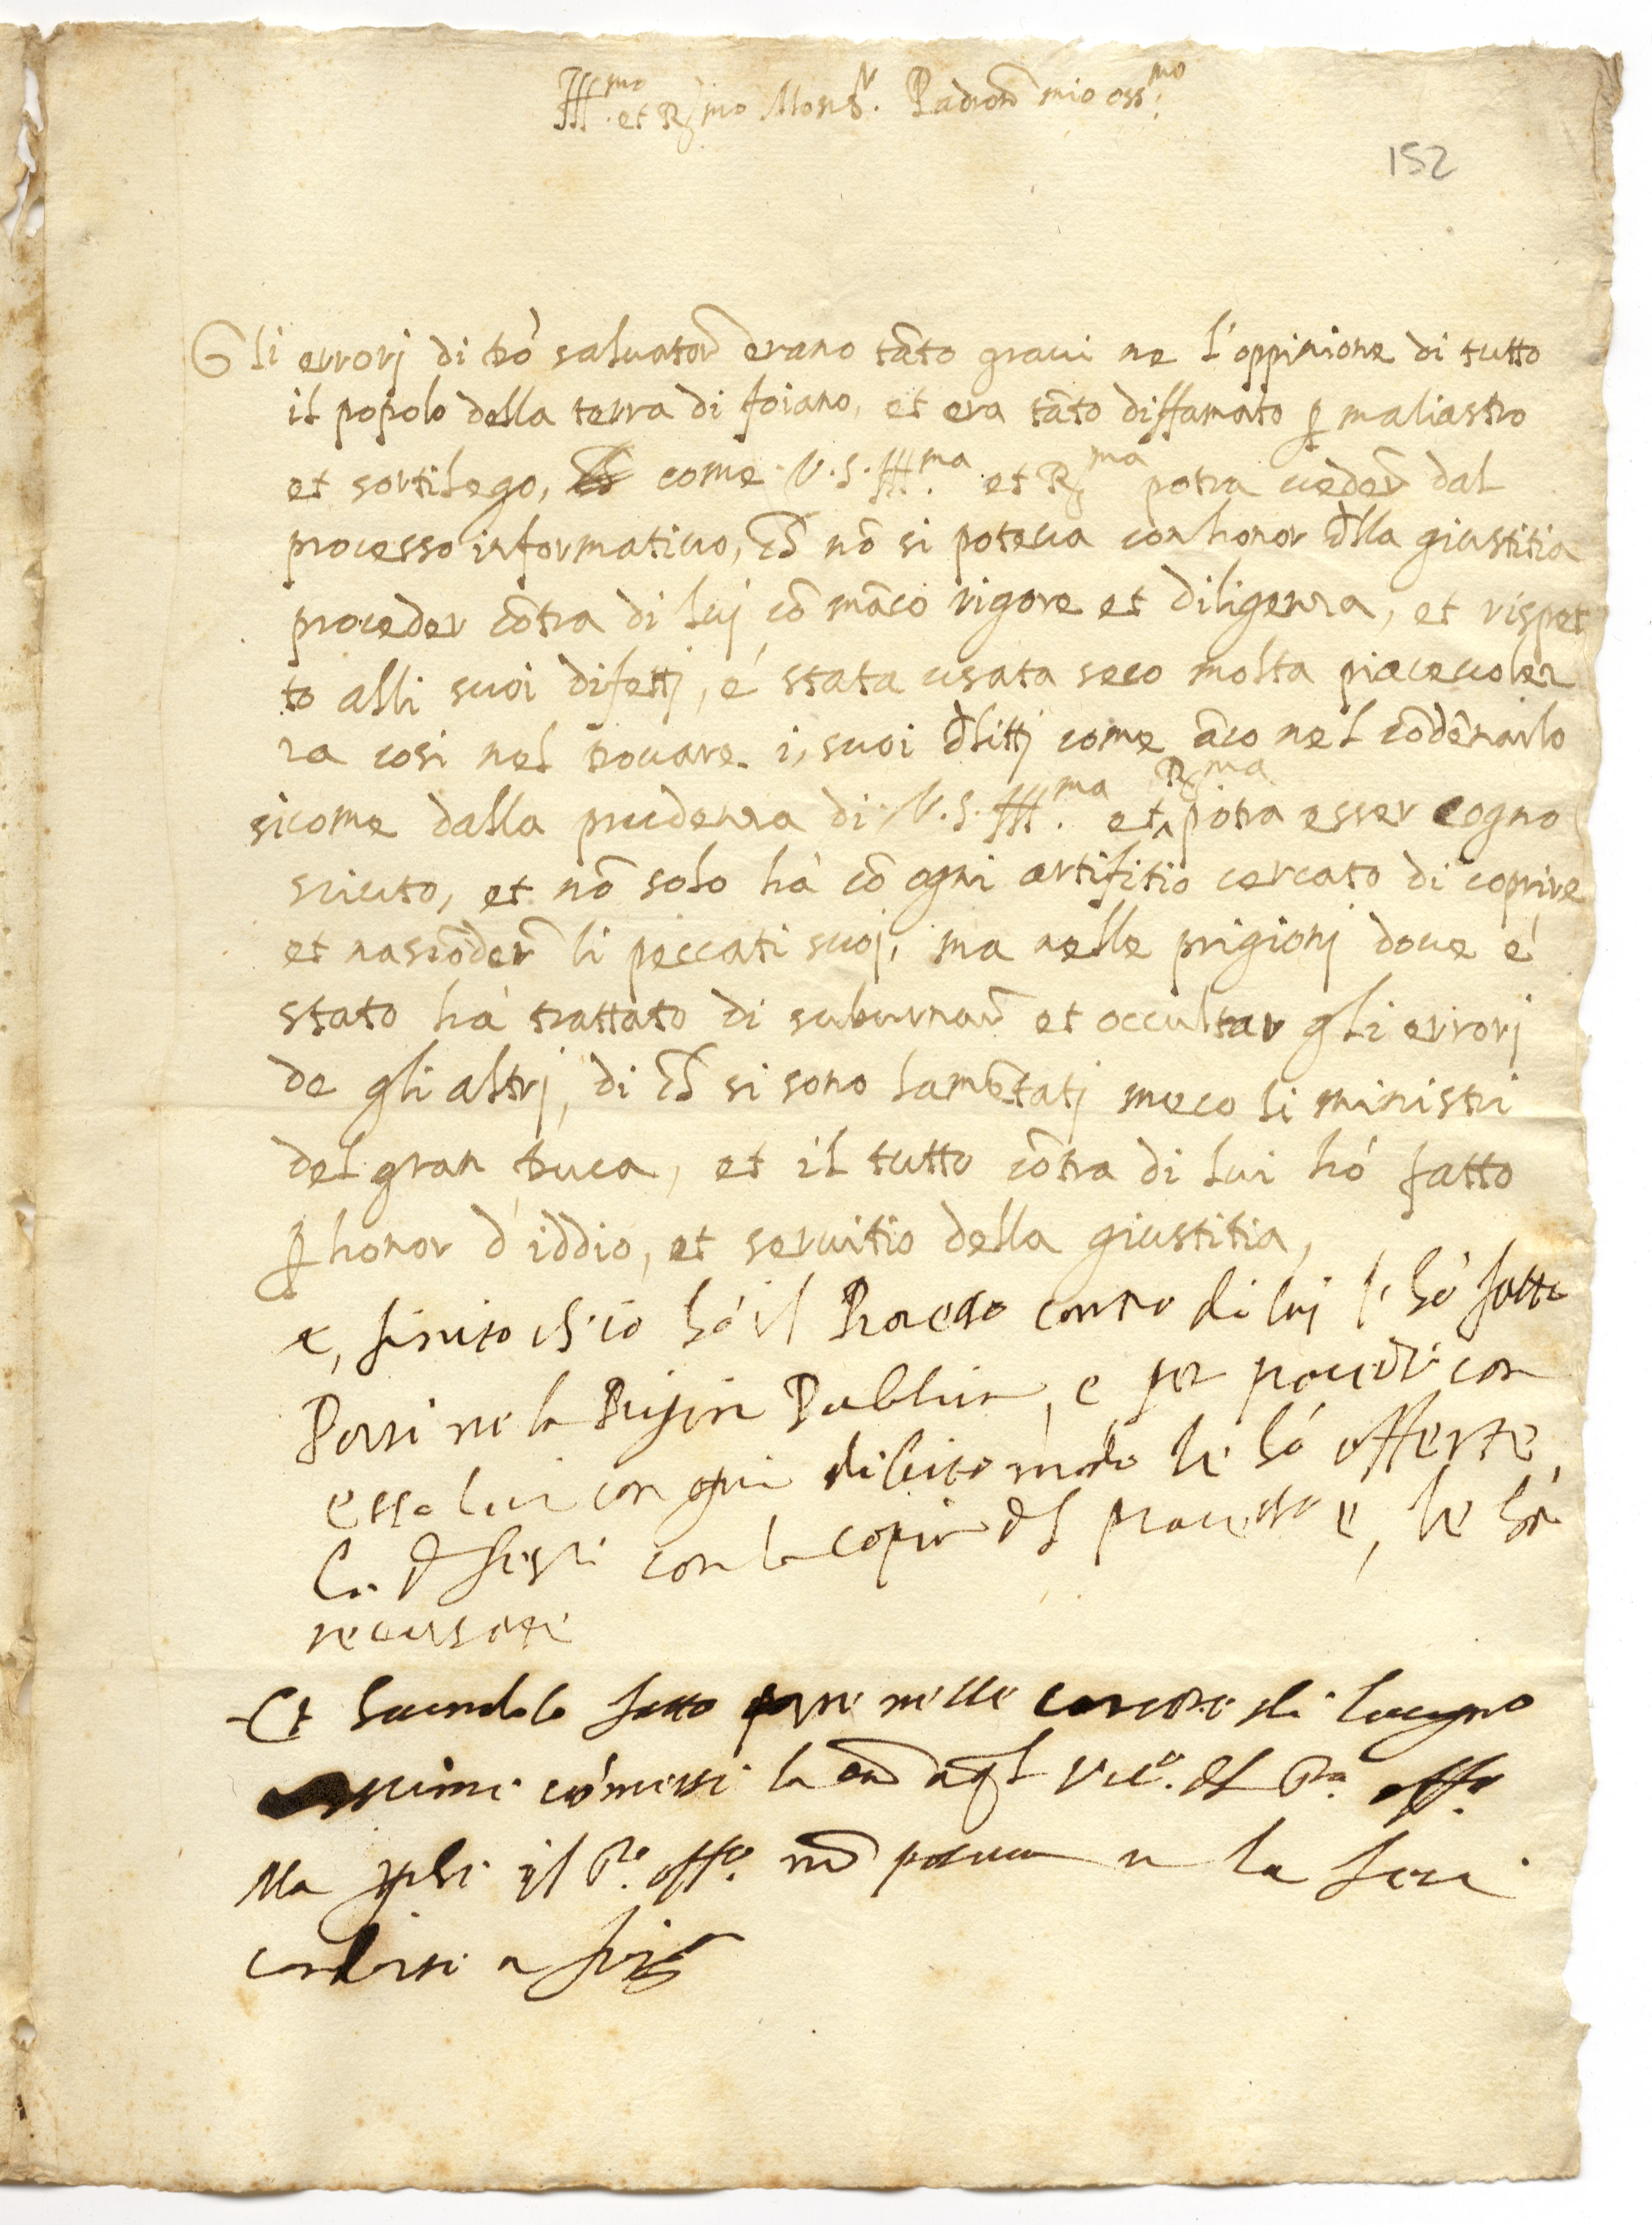 Ill.mo et R.mo Mons.r Padron mio oss.mo
152
Gli errorj di dō saluator erano tāto graui ne l'oppinione di tutto
il popolo della terra di foiano, et era tāto diffamato p maliastro
et sortilego, come V.S. Ill.ma et R.ma potra ueder dal
processo informatiuo, ch nō si poteua con honor dlla giustitia
proceder cōtra di luj cō māco rigore et diligenza, et rispet
to alli suoi difettj, é stata usata seco molta piaceuolez
za cosi nel trouare i, suoi dlittj come āco nel cōdēnarlo
sicome dalla prudenza di V.S. Ill.ma et R.ma potra esser cogno
sciuto, et nō solo hà cō ogni artifitio cercato di coprire
et nascōder li peccati suoj, ma nelle prigionj doue é
stato hà trattato di suburnar et occultar gli errorj
de gli altrj, di ch si sono lamētatj meco li ministri
del gran duca, et il tutto cōtra di lui hó fatto
p honor d'iddio, et seruitio della giustitia,
e, finito ch'io hó il Processo contro di luj l'hó fatto
Porri ne la Prigion Publica, e per
esso lui con ogni debito modo le hó offerte
le con la copia dl processo e, le hà
recusate
Et hauendolo fatto porre nelle carcere di Lucignano
cōmessi la Vic.o dl S.to off.o
Ma il S.to off.o nō poteua